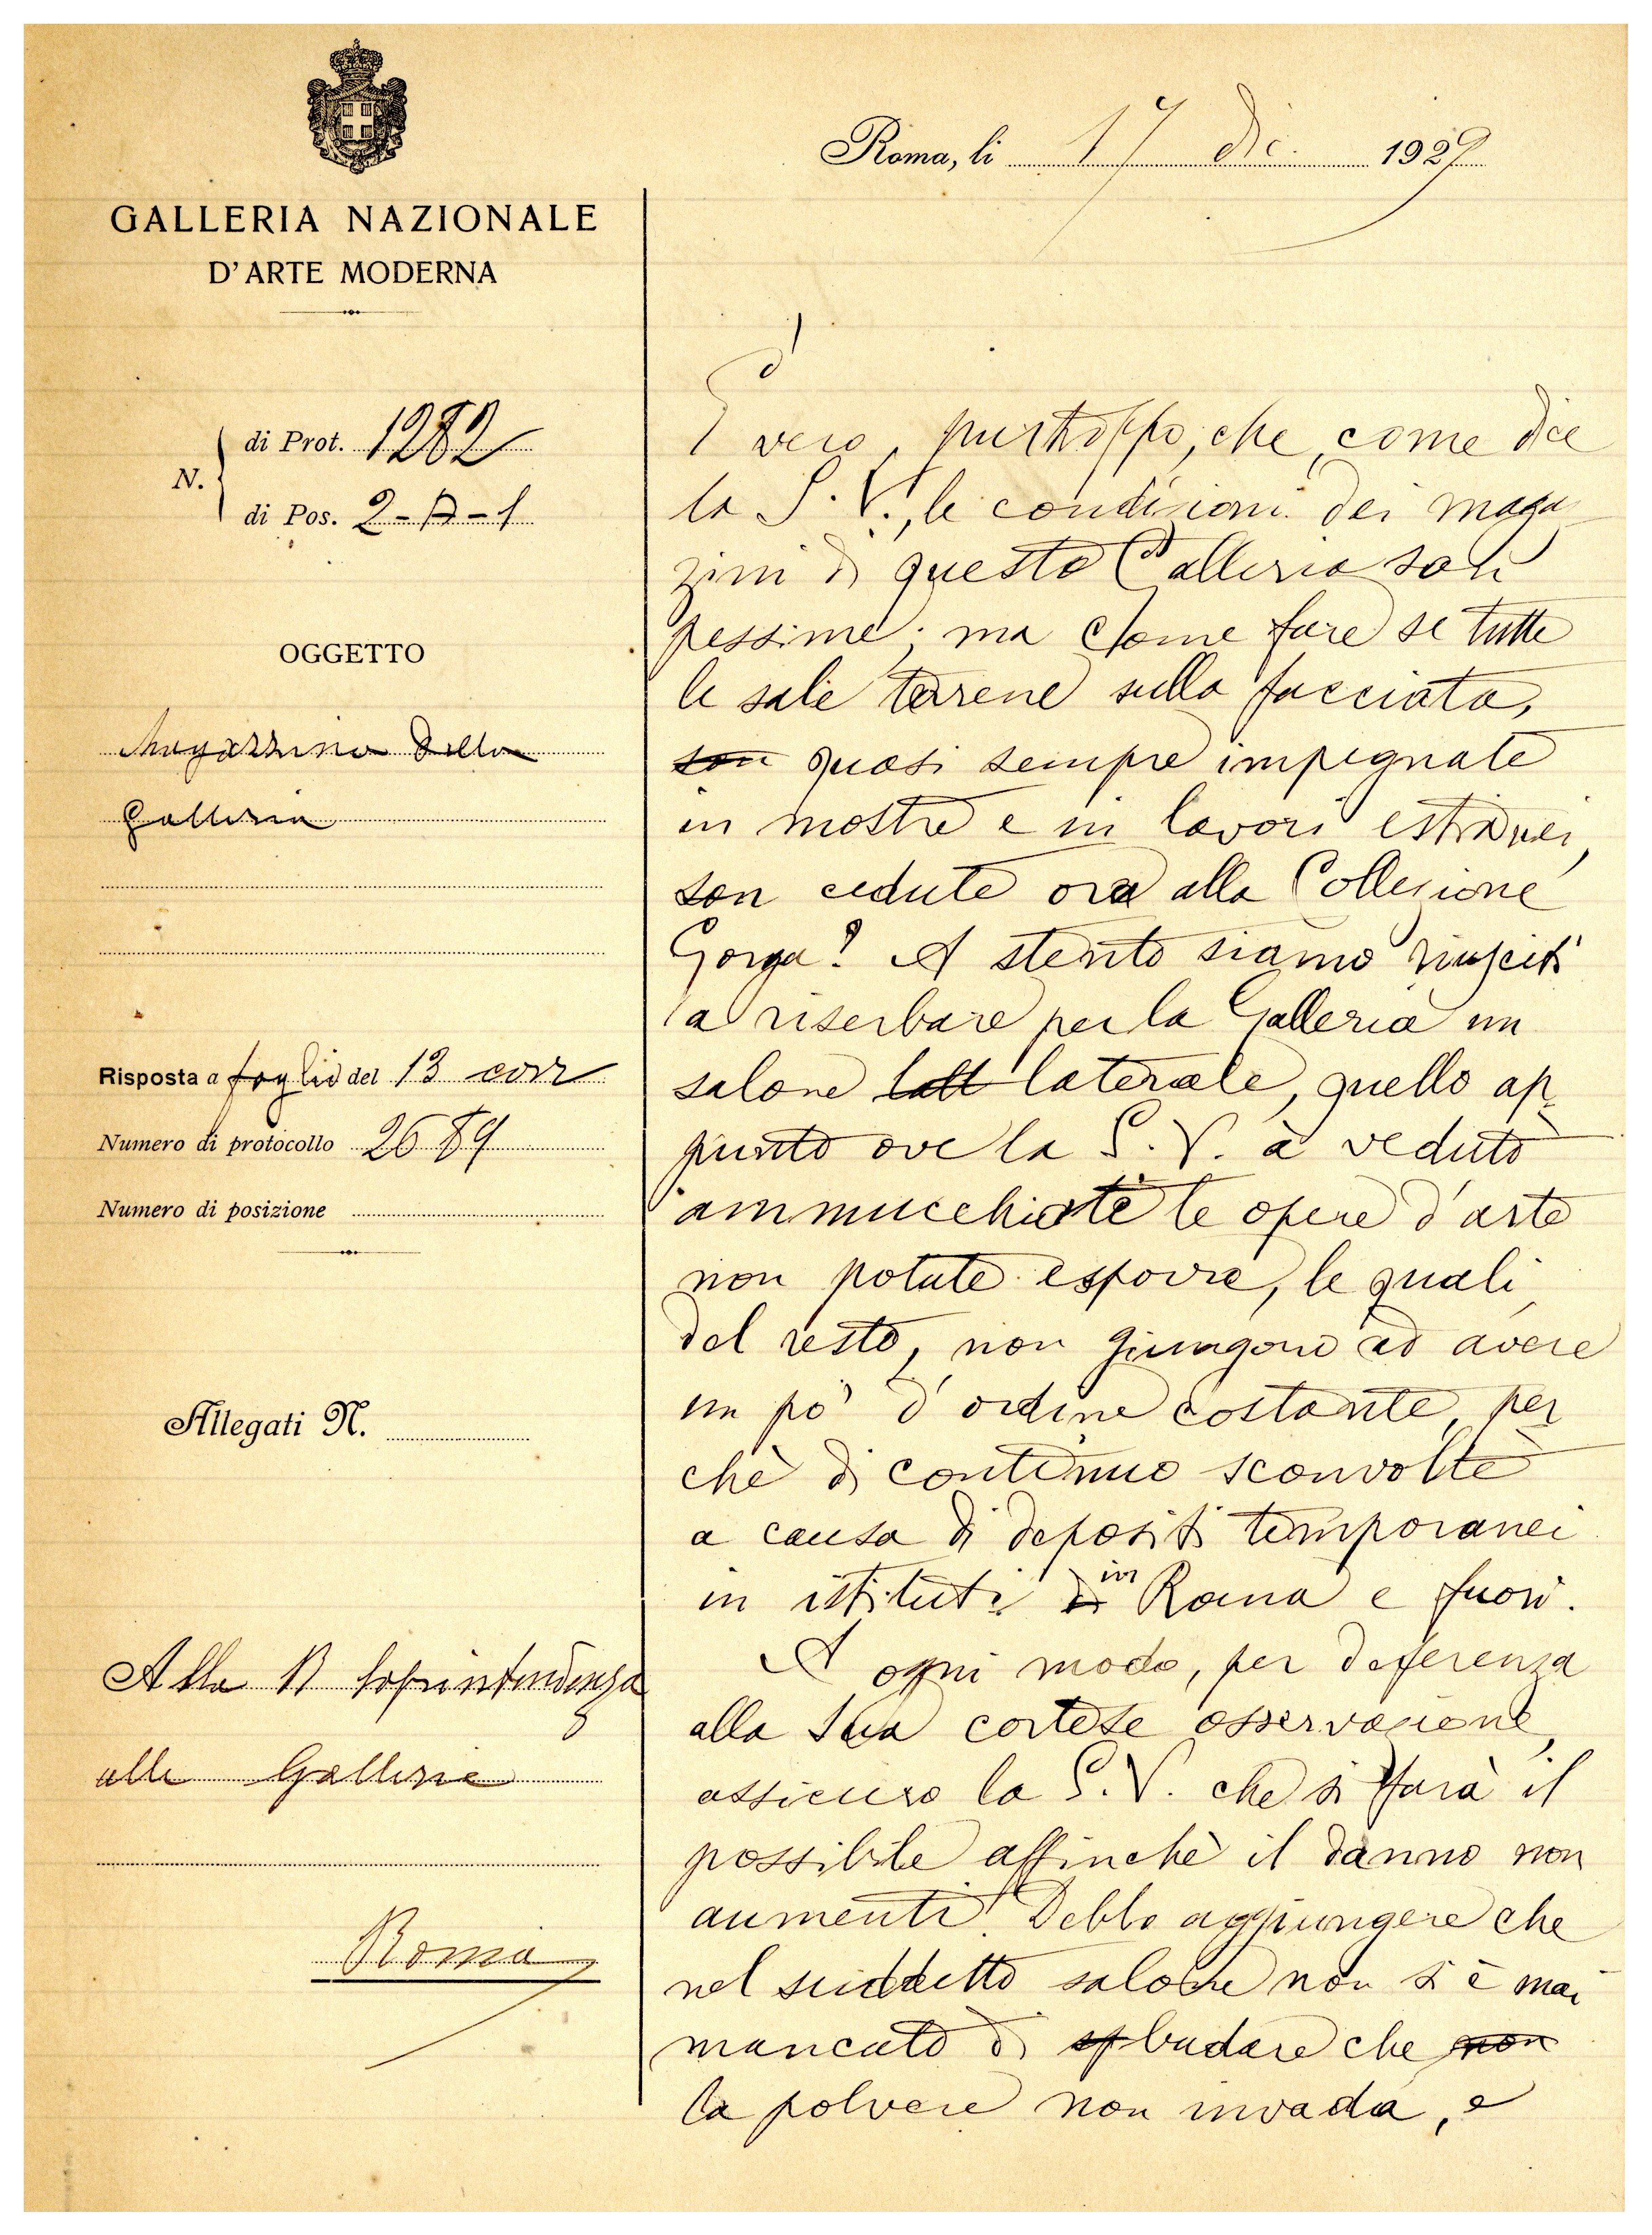 GALLERIA NAZIONALE
D'ARTE MODERNA
Roma, li 17 dic. 1929
N.
di Prot. 1282
di Pos. 2-A-1
OGGETTO
Magazzino della
Galleria
Risposta a foglio del 13 corr
Numero di protocollo 2689
Numero di posizione
Allegati N.
Alla R Soprintendenza
alle Gallerie
Roma
E' vero, purtroppo, che, come dice
la S. V., le condizioni dei maga
zzini di questa Galleria son
pessime; ma come fare se tutte
le sale terrene sulla facciata,
son quasi sempre impegnate
in mostre e in lavori estranei,
son cedute ora alla Collezione
Gorga? A stento siamo riusciti
a riserbare per la Galleria un
salone latt laterale, quello ap
punto ove la S. V. à veduto
ammucchiate le opere d'arte
non potute esporre, le quali,
del resto, non giungono ad avere
un po' d'ordine costante, per
chè di continuo sconvolte
a causa di depositi temporanei
in istituti di in Roma e fuori.
A ogni modo, per deferenza
alla Sua cortese osservazione,
assicuro la S. V. che si farà il
possibile affinchè il danno non
aumenti. Debbo aggiungere che
nel suddetto salone non si è mai
mancato di badare che non
la polvere non invada, e